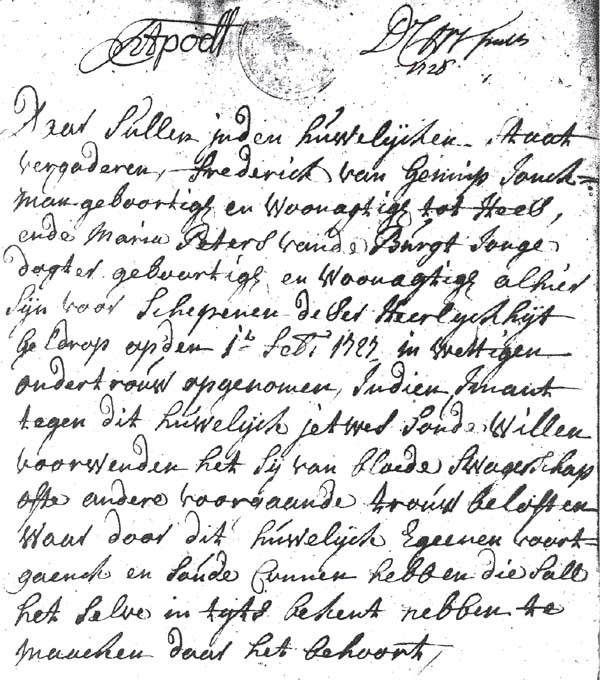 1728
Daar Sullen in den húwelijcken Staat
vergaderen, frederick van Gennip Jonck=
man geboortigh en Woonagtigh tot Heese,
ende Maria Peters vande Búrgt Jonge
dogter geboortigh en Woonagtigh alhier
Sijn voor Schepenen deser Heerlijckhijt
Geldrop op den 1e feb: 1727 in wettigen
ondertroúw opgenomen, Indien Imant
tegen dit húwelijck ietwes Soúde Willen
voorwenden het Sij van bloede Swagerschap
ofte andere voorgaande troúw beloften
Waar door dit húwelijck Egeenen voort-
ganck en Soúde Connen hebben die Sall
het Selve in tyts bekent hebben te
maacken daar het behoort,